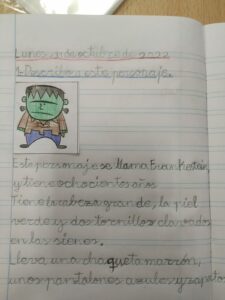 Lunes, 31 de octubre de 2022
1. Describo a este personaje.
Este personaje se llama Frankestein,
y tiene ochocientos años
Tiene la cabeza grande, la piel
verde y dos tornillos clavados
en las sienes.
Lleva una chaqueta marrón,
unos pantalones azules y zapatos